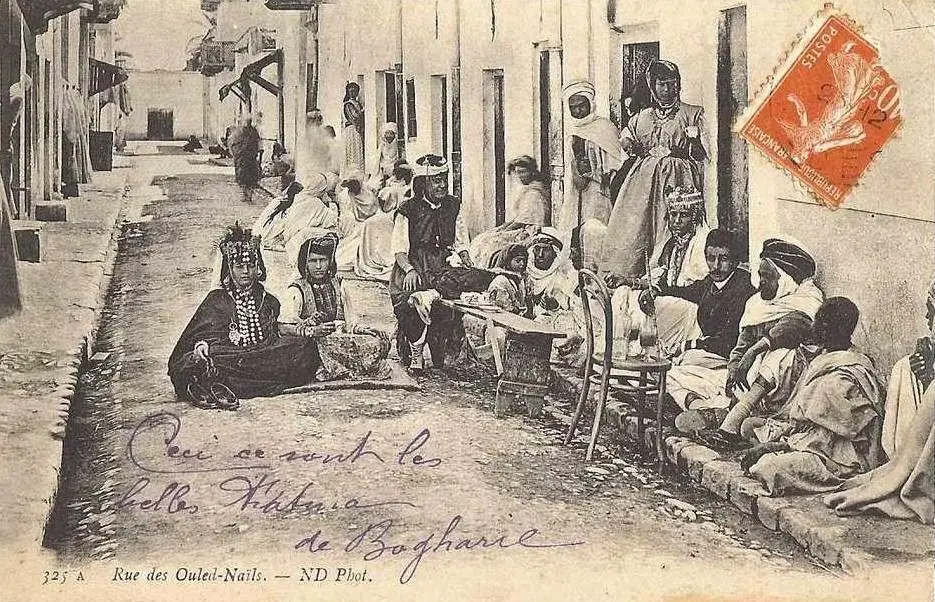 POSTES
RÉPUBLIQUE FRANÇAISE
Ceci ce sont les
belles Fatma
de Bogharie
325 A Rue des Ouled-Naïls. — ND Phot.